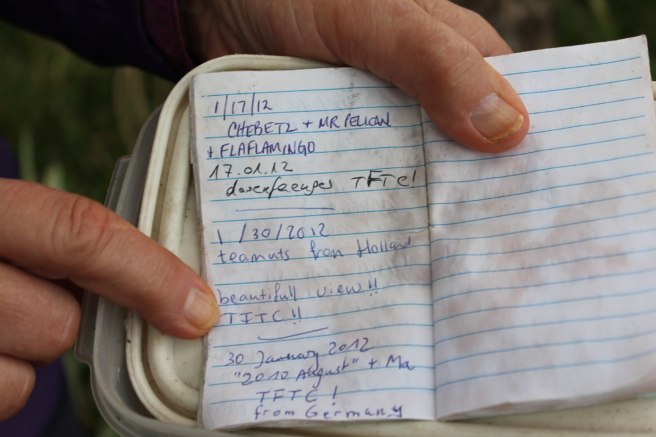 1/17/12
CHEBETZ + MR PELICAN
+ FLAFLAMINGO
17.01.12
dosenfeenges TFTC!
1/30/2012
teamnts from Holland
beautifull view!!
TFTC!!
30 January 2012
"2010 August" + Ma
TFTC!
from Germany